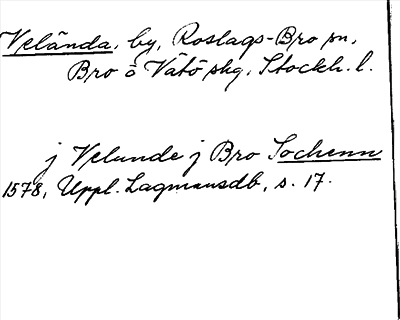 Velända, by, Roslags-Bro sn,
Bro o Vätö skg, Stockh. l.
j Velunde j Bro Sochenn
1578, Uppl. Lagmansdb, s. 17.